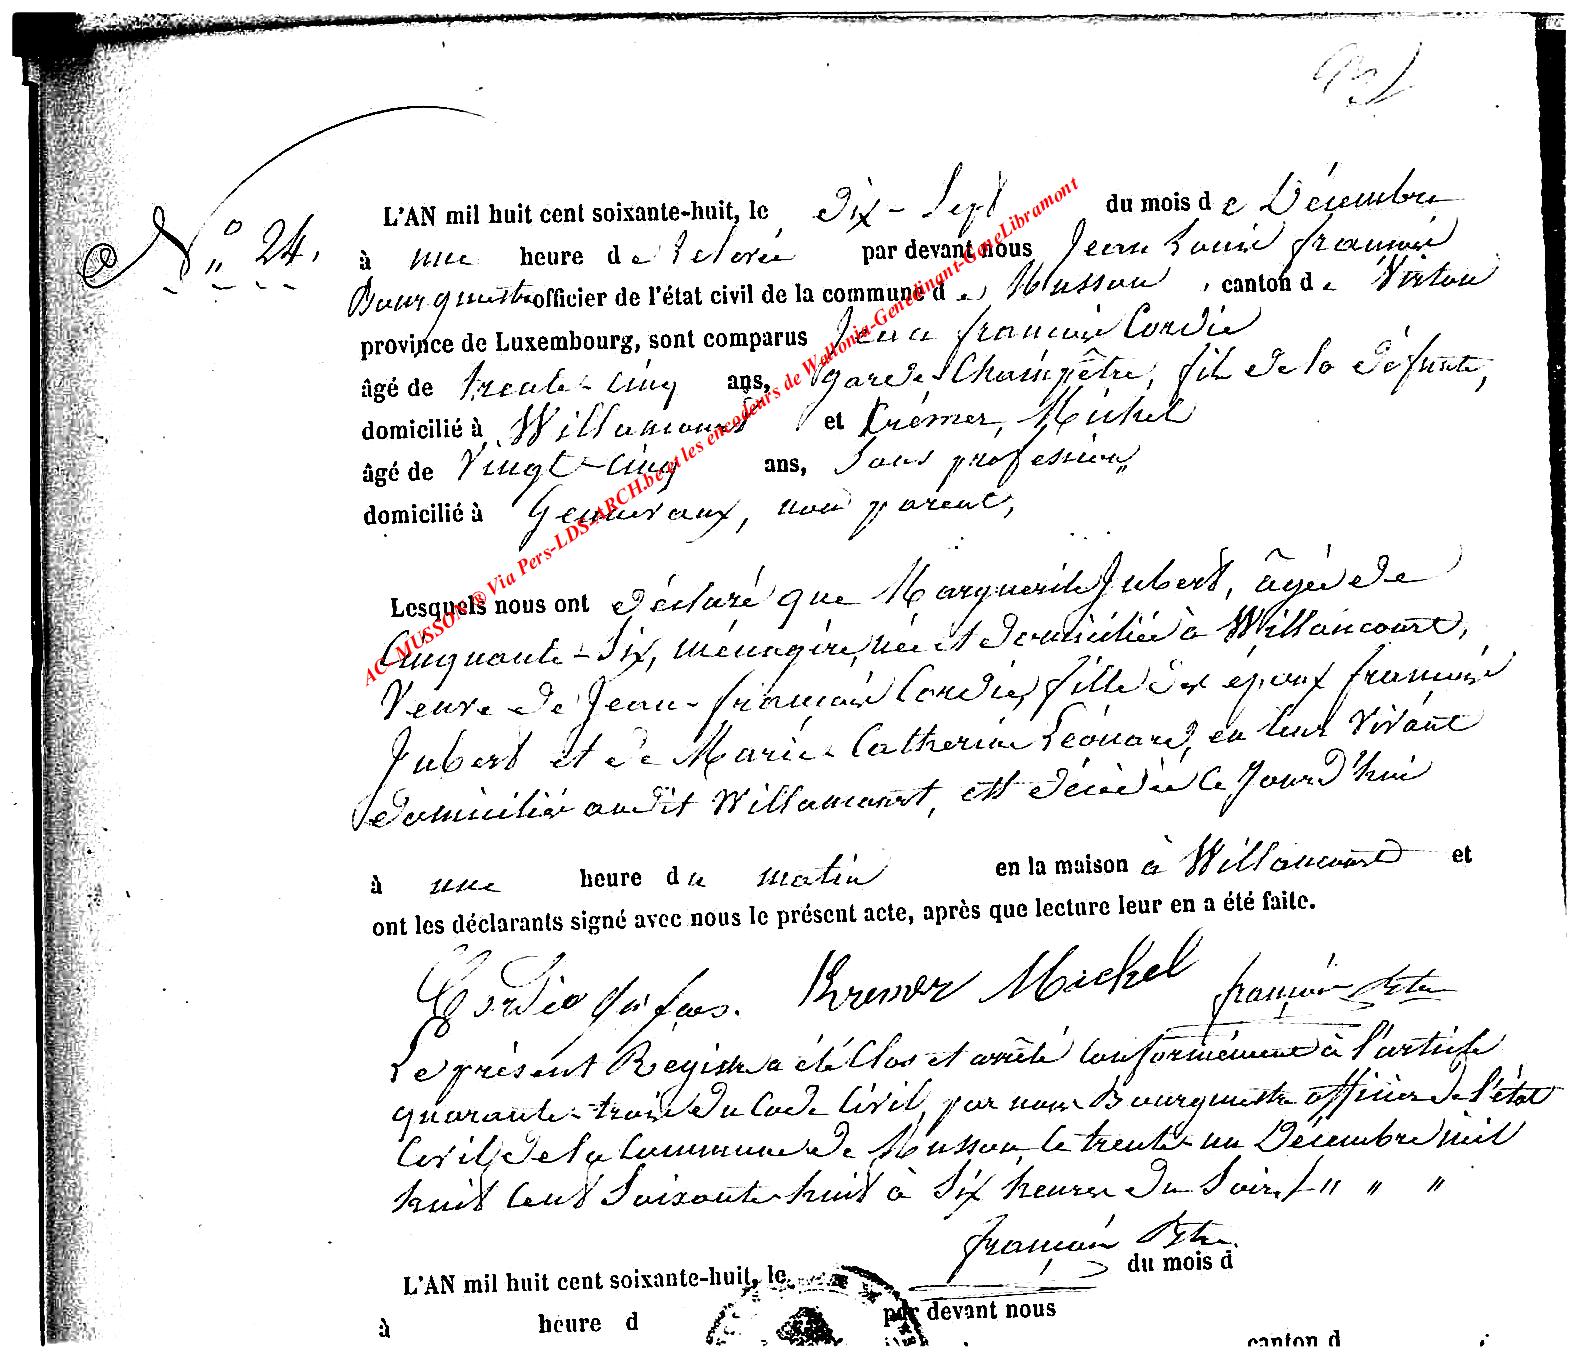 N° 24.
L'AN mil huit cent soixante-huit, le dix-sept du mois de Décembre
à une heure de relevée par devant nous Jean Louis françois
Bourgmestre officier de l'état civil de la commune de Musson, canton de Virton
province de Luxembourg, sont comparus Jean françois Cordie
âgé de trente-cinq ans, garde-champêtre, fils de la défunte,
domicilié à Willancourt et Krémer, Michel
âgé de vingt-cinq ans, sans profession,
domicilié à Gennevaux, non parent,
Lesquels nous ont déclaré que Marguerite Jubert, âgée de
Cinquante-Six, ménagère, née et domiciliée à Willancourt,
Veuve de Jean-françois Cordie, fille des époux françois
Jubert et de Marie-Catherine Léonard, en leur vivant
domiciliés audit Willancourt, est décédée ce jourd'hui
à une heure du matin en la maison à Willancourt et
ont les déclarants signé avec nous le présent acte, après que lecture leur en a été faite.
Cordie Kremer Michel françois
Le présent Registre a été Clos et arrêté conformément à l'article
quarante-trois du Code Civil, par nous Bourgmestre officier de l'état
Civil de la Commune de Musson, le trente-un Décembre mil
huit Cent Soixante huit à Six heures du Soir " " "
françois
L'AN mil huit cent soixante-huit, le du mois d
à heure d par devant nous
canton d
AC MUSSON ® Via Pers-LDS-ARCH.be et les encodeurs de Wallonia-Genedinant-GeneLibramont